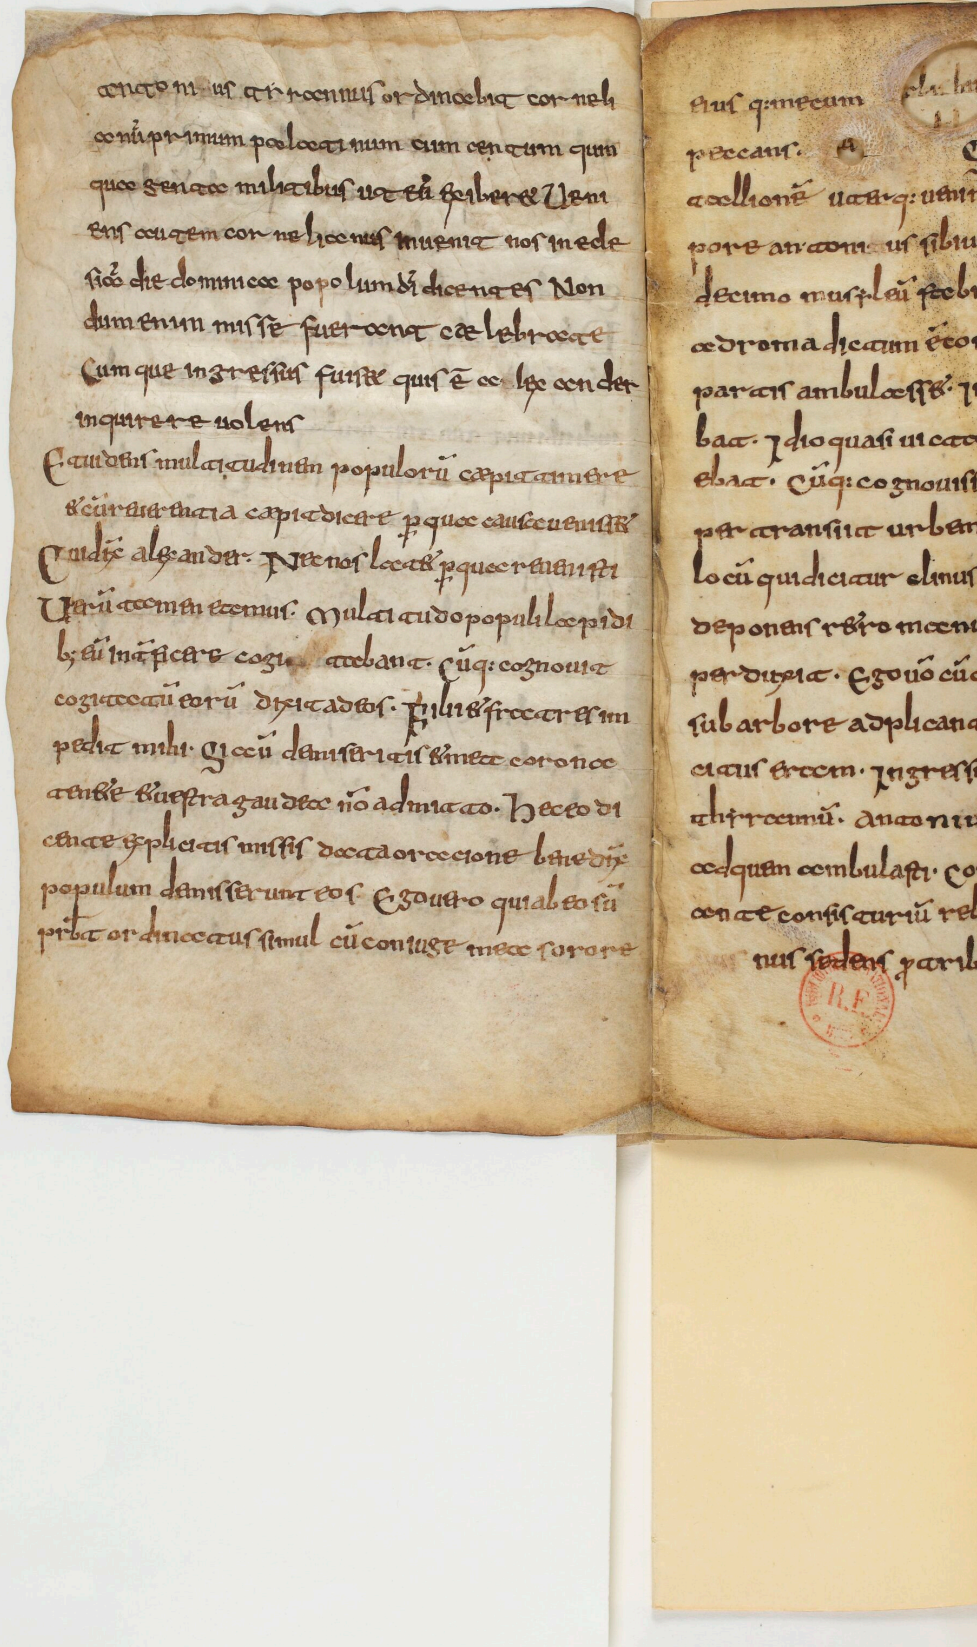 antoni us tyrannus ordinabit corneli
anū primum palatinum cum centum quin
quagenta militibus ut eū exiberet Veni
ens autem cornelianus inuenit nos in ede
sicā die dominica popolum dī dicentes Non
dum enim misse fuerant caelebrate
Cumque ingressus fuisset quis ē alexander
inquirere uolens
Et uidens multitudinem populorū caepit timere
et cū reuerentia caepit dicere p quae causa uenisset
Cui dix alexander. Nec nos latet p quae reuenisti
Verū tamen eamus. Multitudo populi lapidi
b; eū interficere cogi tabant. Cūq: cognouit
cogitatū eorū dixit ad eos. Filii et fratres im
pedit mihi. Si eū demiseritis et mea corona
tenete et uestra gaudea nō admitto. Hec eo di
cente explicitis missis data oracione benedix
populum demisserunt eos. Ego uero qui ab eo sū
prbt ordinatus simul cū coniuge mea sorore
eius q: mecum
peccans.
tallionē uterq: uenir
pore antoni us sibiu
decimo
a droma dictum ē co
partis ambulasset. I
bat. Idio quasi uicta
ebat. Cūq: cognouiss
per transiit urbem
locū qui dicitur clinus
deponens retro
perduxit. Ego uō cū
sub arbore adplicant
citus ertem. Ingressi
thyrannū. antoniu
ad quem ambulasti. Co
ante consisturiū rel
nus sedens p trib
R.F.